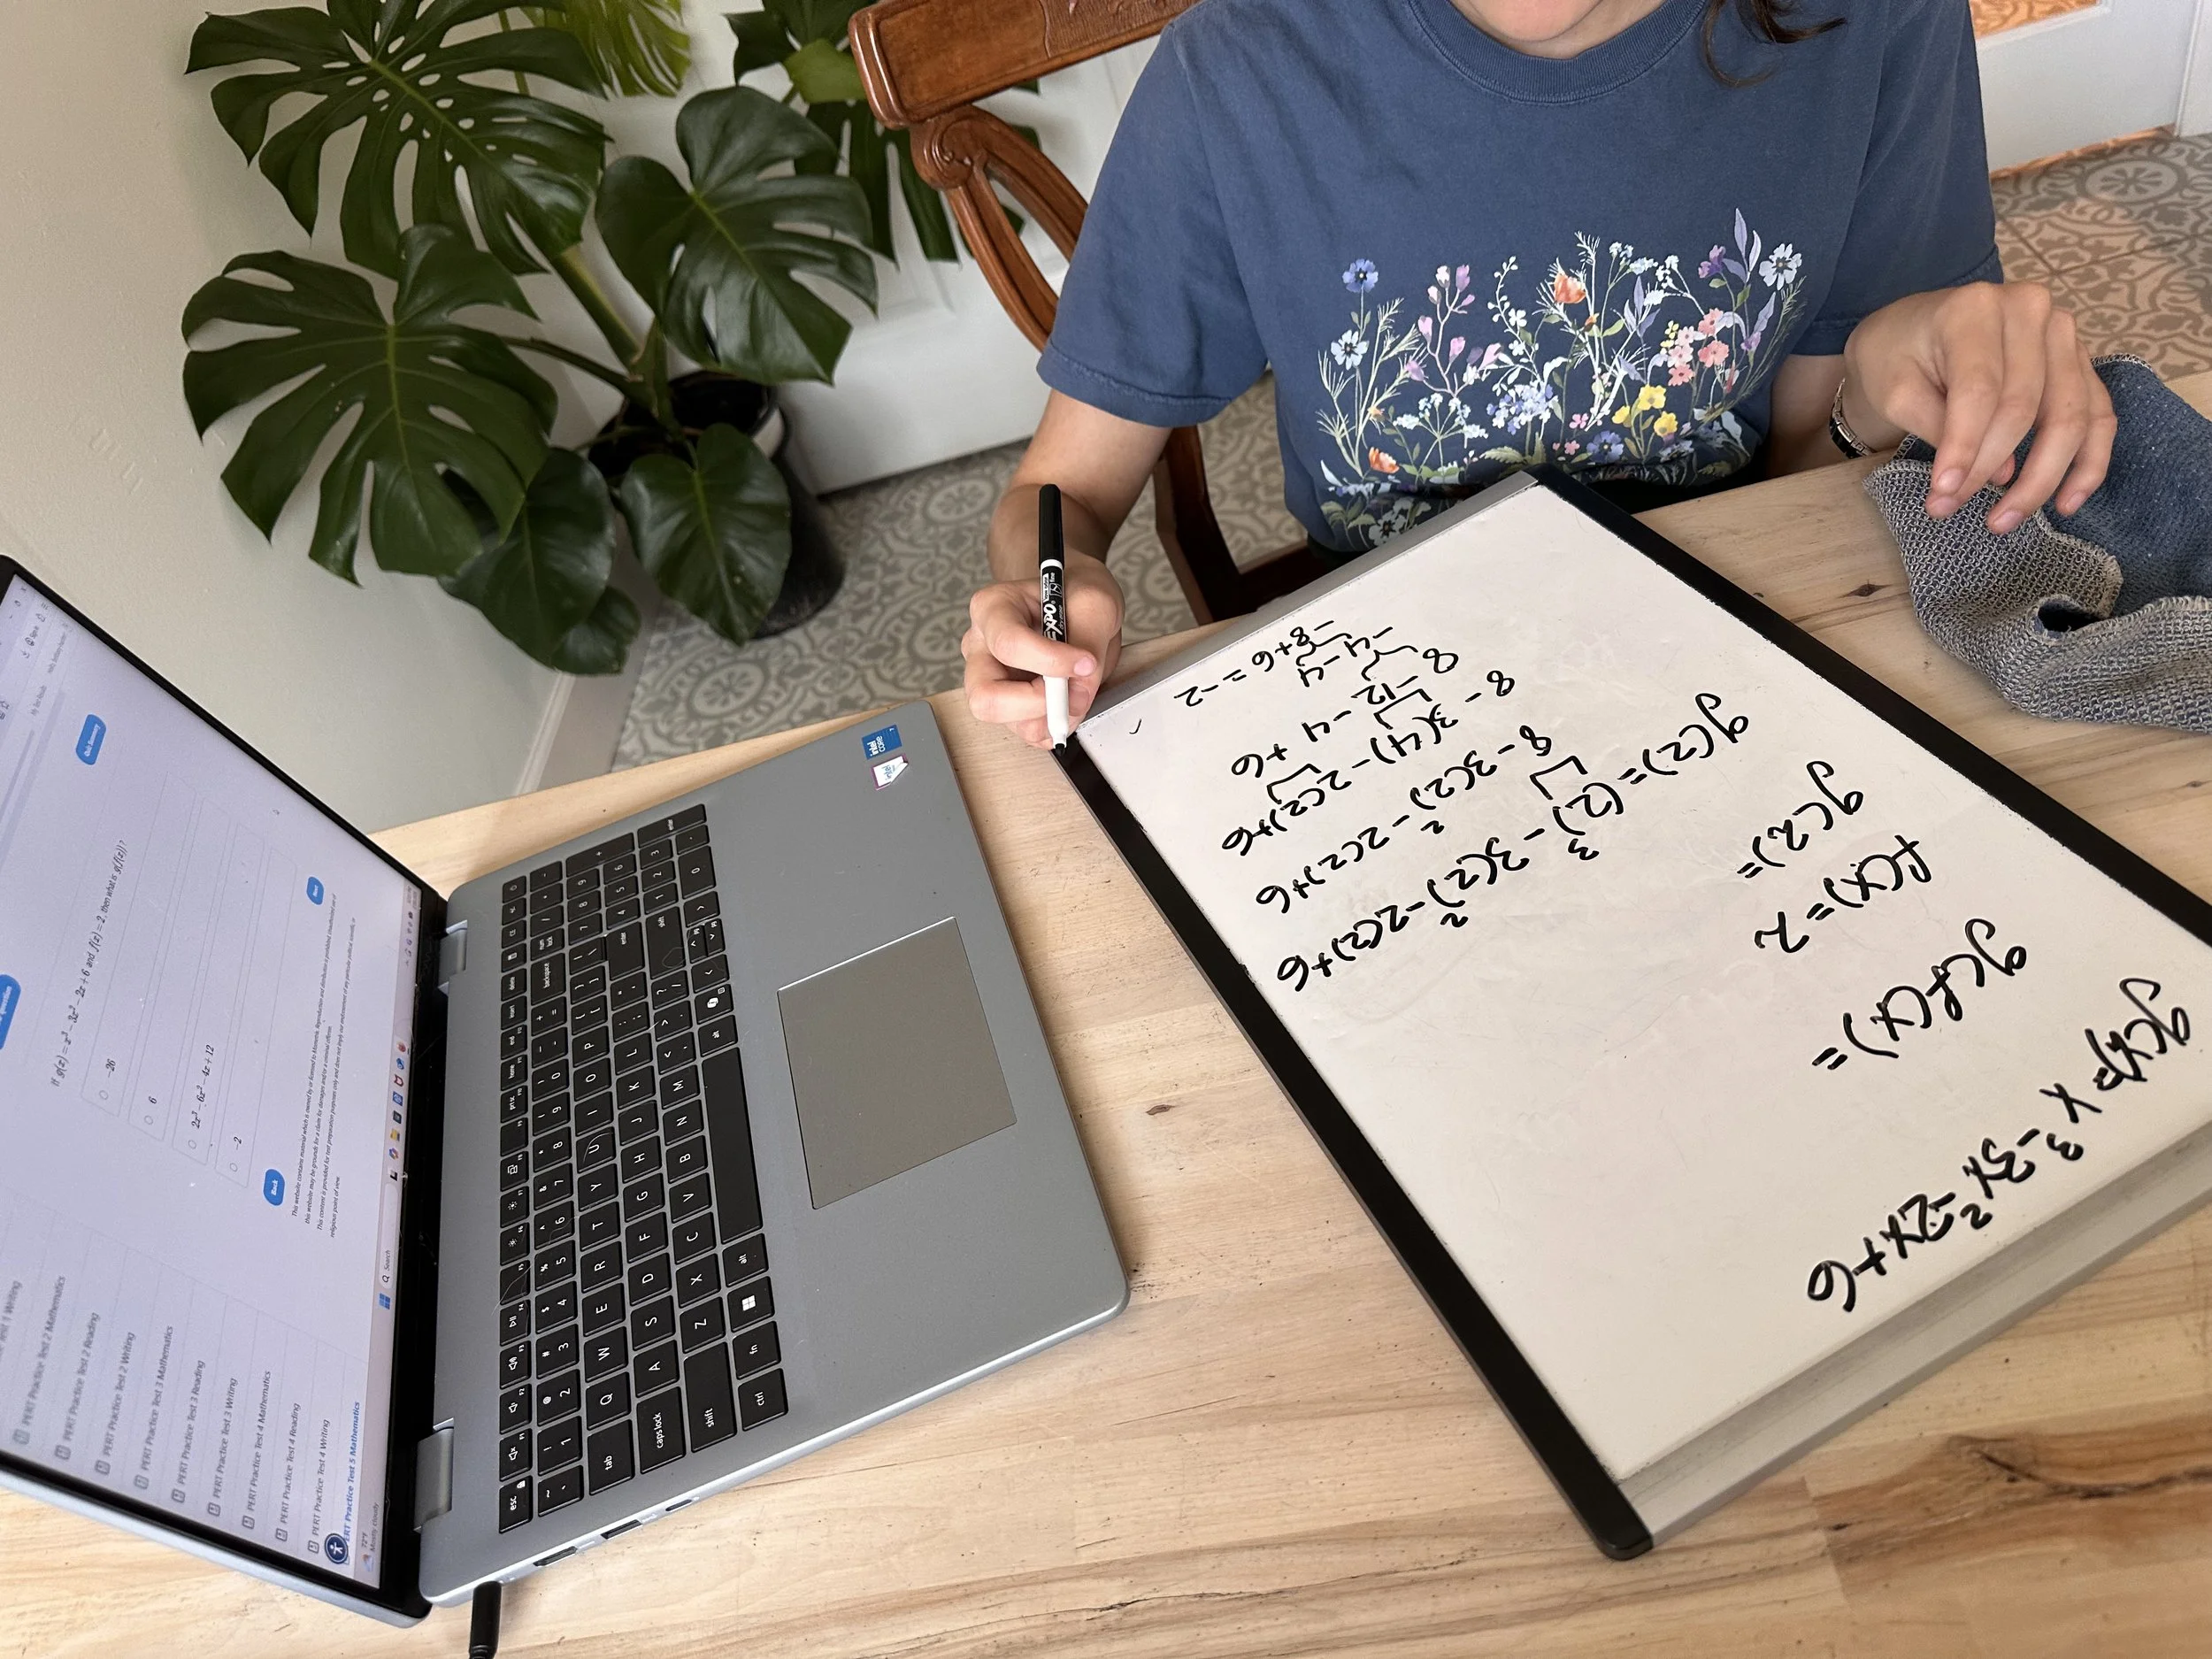 g(x)= x³-3x²-2x+6
g(f(x)=
f(x)=2
g(2)=
g(2)=(2)³-3(2)²-2(2)+6
8-3(2)²-2(2)+6
8-3(4)-2(2)+6
8-12-4+6
-4-4
-8+6=-2
If g(x) = x³ - 3x² - 2x + 6 and f(x) = 2, then what is g(f(x))?
-26
6
2x³ - 6x² - 4x + 12
-2
Back
Next
Quiz Summary
PERT Practice Test 2 Mathematics
PERT Practice Test 2 Reading
PERT Practice Test 2 Writing
PERT Practice Test 3 Mathematics
PERT Practice Test 3 Reading
PERT Practice Test 3 Writing
PERT Practice Test 4 Mathematics
PERT Practice Test 4 Reading
PERT Practice Test 4 Writing
PERT Practice Test 5 Mathematics
72°F
Mostly cloudy
Search
EXPO
intel
CORE
esc
tab
caps lock
shift
ctrl
fn
alt
Q W E R T Y U I O P
A S D F G H J K L
Z X C V B N M
backspace
enter